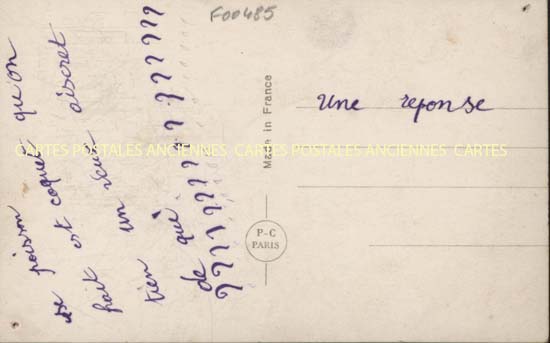 F00485
Le poisson
est coquet qu'on
fait un veux discret
tien
de qui ? ? ? ? ? ? ? ? ? ?
? ? ? ? ? ? ? ? ? ?
Made in France
P-C
PARIS
Une reponse
CARTES POSTALES ANCIENNES CARTES POSTALES ANCIENNES CARTES